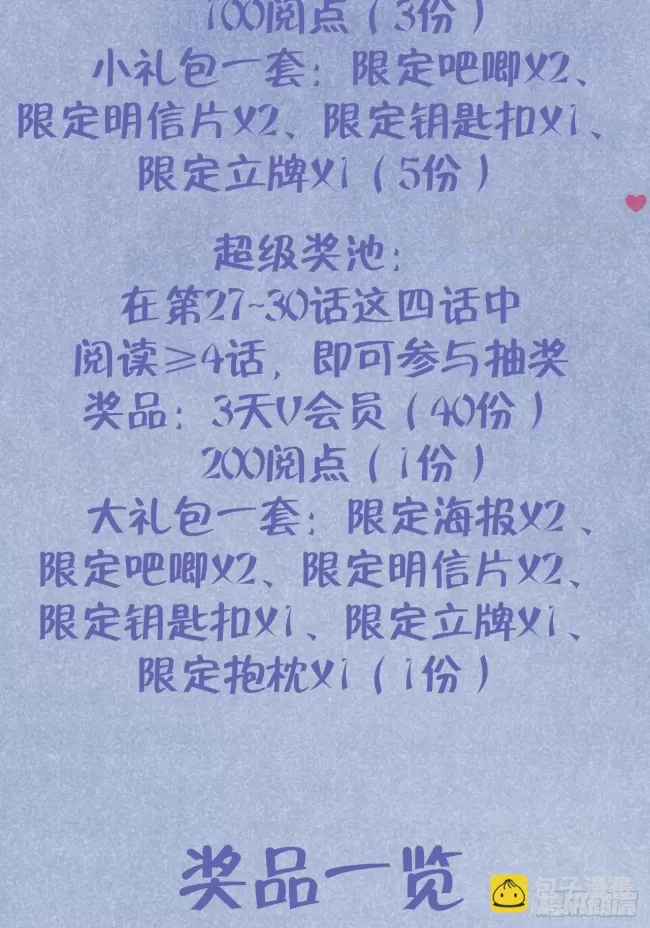 100阅点（3份）
小礼包一套：限定吧唧X2、
限定明信片X2、限定钥匙扣X1、
限定立牌X1（5份）
超级奖池：
在第27~30话这四话中
阅读≥4话，即可参与抽奖
奖品：3天V会员（40份）
200阅点（1份）
大礼包一套：限定海报X2、
限定吧唧X2、限定明信片X2、
限定钥匙扣X1、限定立牌X1、
限定抱枕X1（1份）
奖品一览
包子漫畫